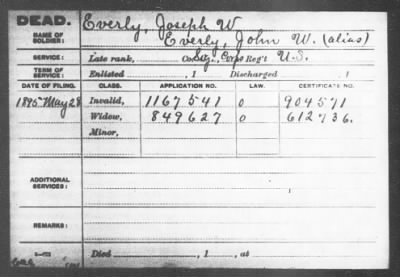 DEAD. Everly, Joseph W
NAME OF SOLDIER: Everly, John W. (alias)
SERVICE: Late rank, Co. Reg't U.S.
TERM OF SERVICE: Enlisted , 1 Discharged , 1
DATE OF FILING. CLASS. APPLICATION NO. LAW. CERTIFICATE NO.
1895 May 28 Invalid, 1167541 0 904571
Widow, 849627 0 612736.
Minor,
ADDITIONAL SERVICES:
REMARKS:
Died , 1 , at